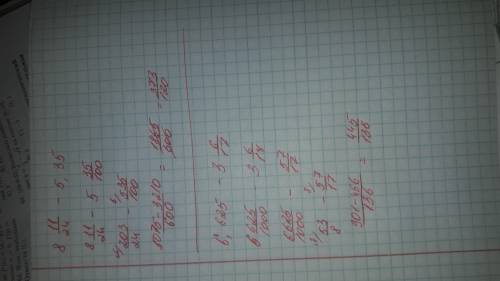 8 11/24 - 5,35
8 11/24 - 5 35/100
203/24 - 535/100
5075-3210/600 = 1865/600 = 373/120
6,625 - 3 6/17
6 625/1000 - 3 6/17
6625/1000 - 57/17
53/8 - 57/17
901-456/136 = 445/136